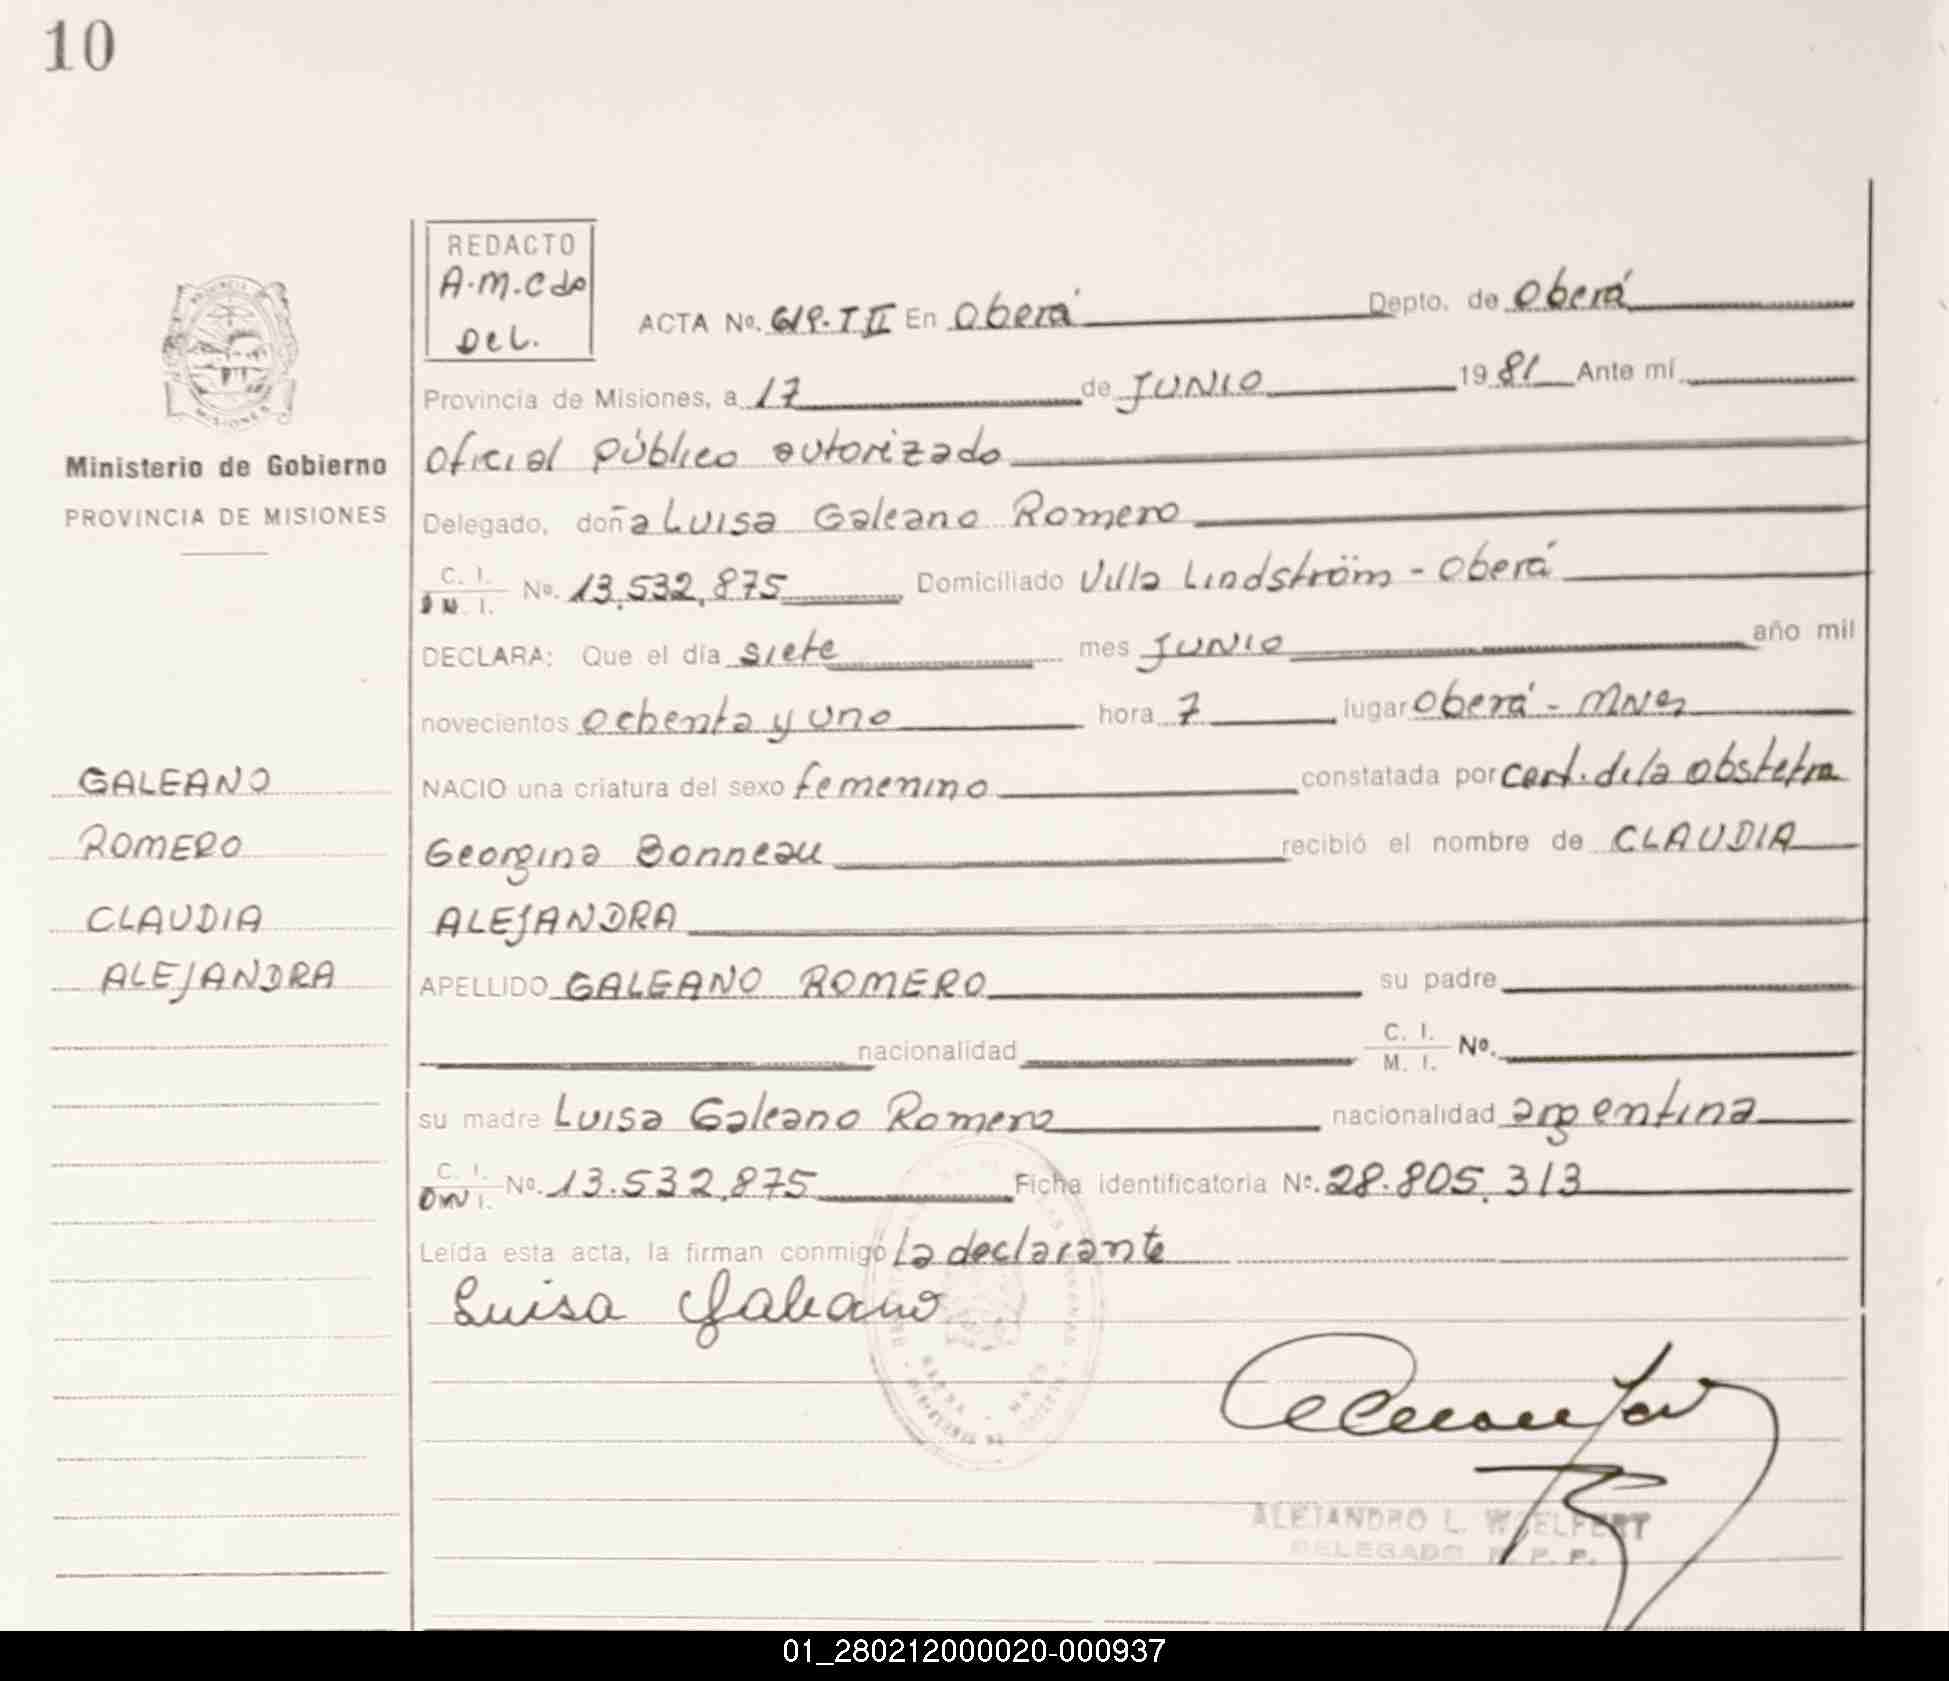 10
REDACTO
A.M.Cdo
Del.
ACTA Nº. 619.T II En Oberá Depto. de Oberá
Provincia de Misiones, a 17 de JUNIO 1981 Ante mí
Oficial Público autorizado
Ministerio de Gobierno
PROVINCIA DE MISIONES
Delegado, doña Luisa Galeano Romero
C. I. Nº. 13.532.875 Domiciliado Villa Lindström - Oberá
DECLARA: Que el día siete mes JUNIO año mil
novecientos ochenta y uno hora 7 lugar Oberá - MNes
GALEANO
ROMERO
CLAUDIA
ALEJANDRA
NACIO una criatura del sexo femenino constatada por cert. de la obstetra
Georgina Bonneau recibió el nombre de CLAUDIA
ALEJANDRA
APELLIDO GALEANO ROMERO su padre
nacionalidad C. I. M. I. Nº.
su madre Luisa Galeano Romero nacionalidad argentina
C. I. DN I. Nº. 13.532.875 Ficha identificatoria Nº. 28.805.313
Leída esta acta, la firman conmigo la declarante
Luisa Galeano
ALEJANDRO L. WOELFERT
DELEGADO R. P. P.
01_280212000020-000937